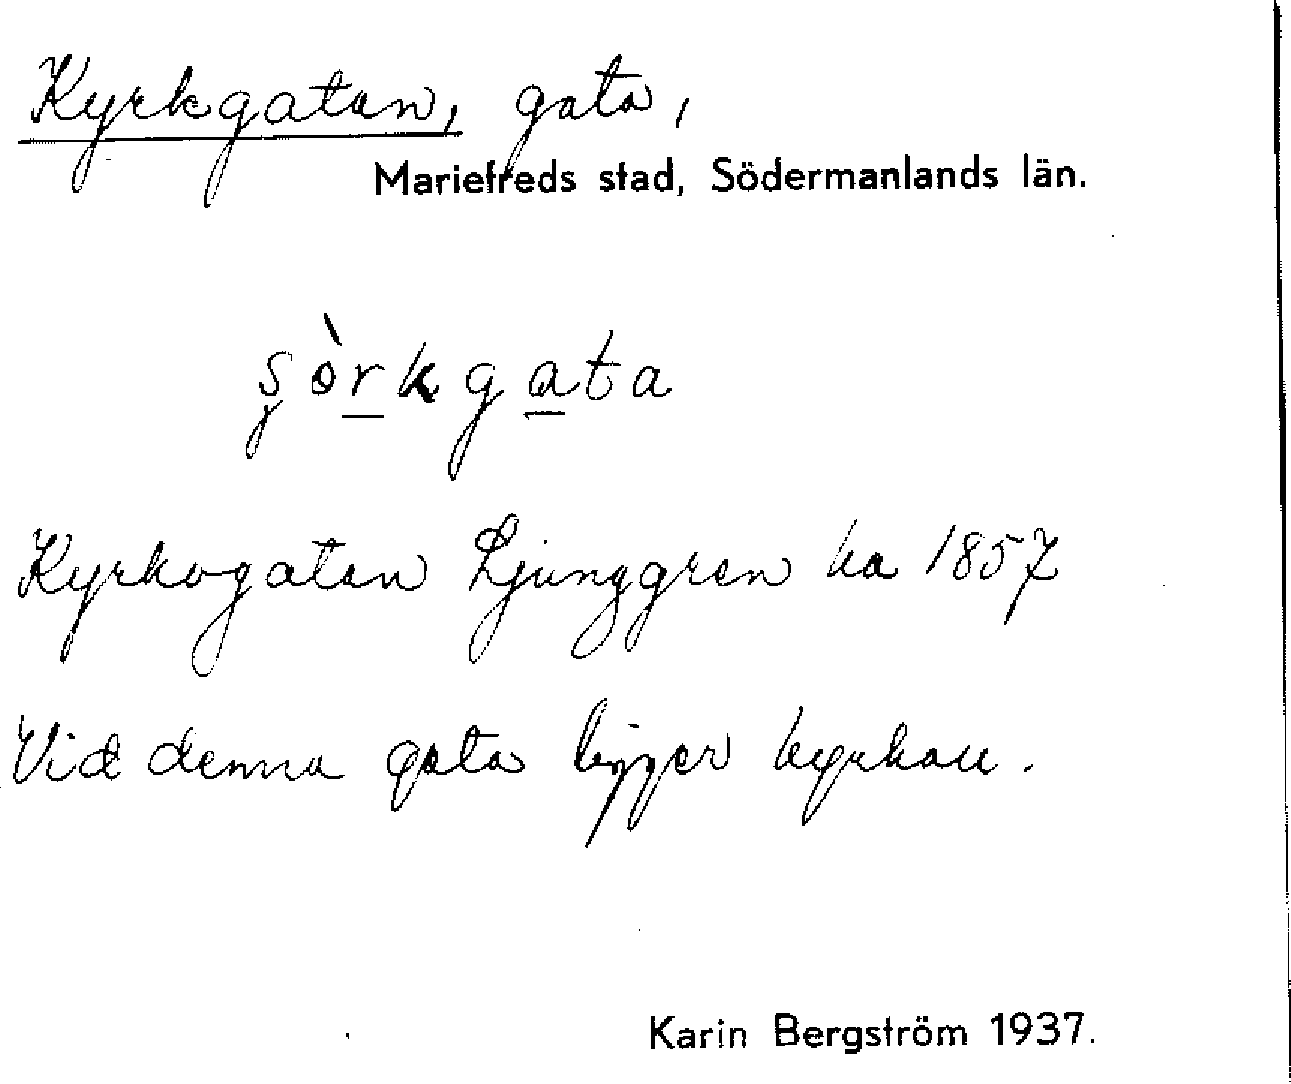 Kyrkgatan, gata,
Mariefreds stad, Södermanlands län.
şòrkgata
Kyrkogatan Ljunggren ka 1857
Vid denna gata ligger kyrkan.
Karin Bergström 1937.